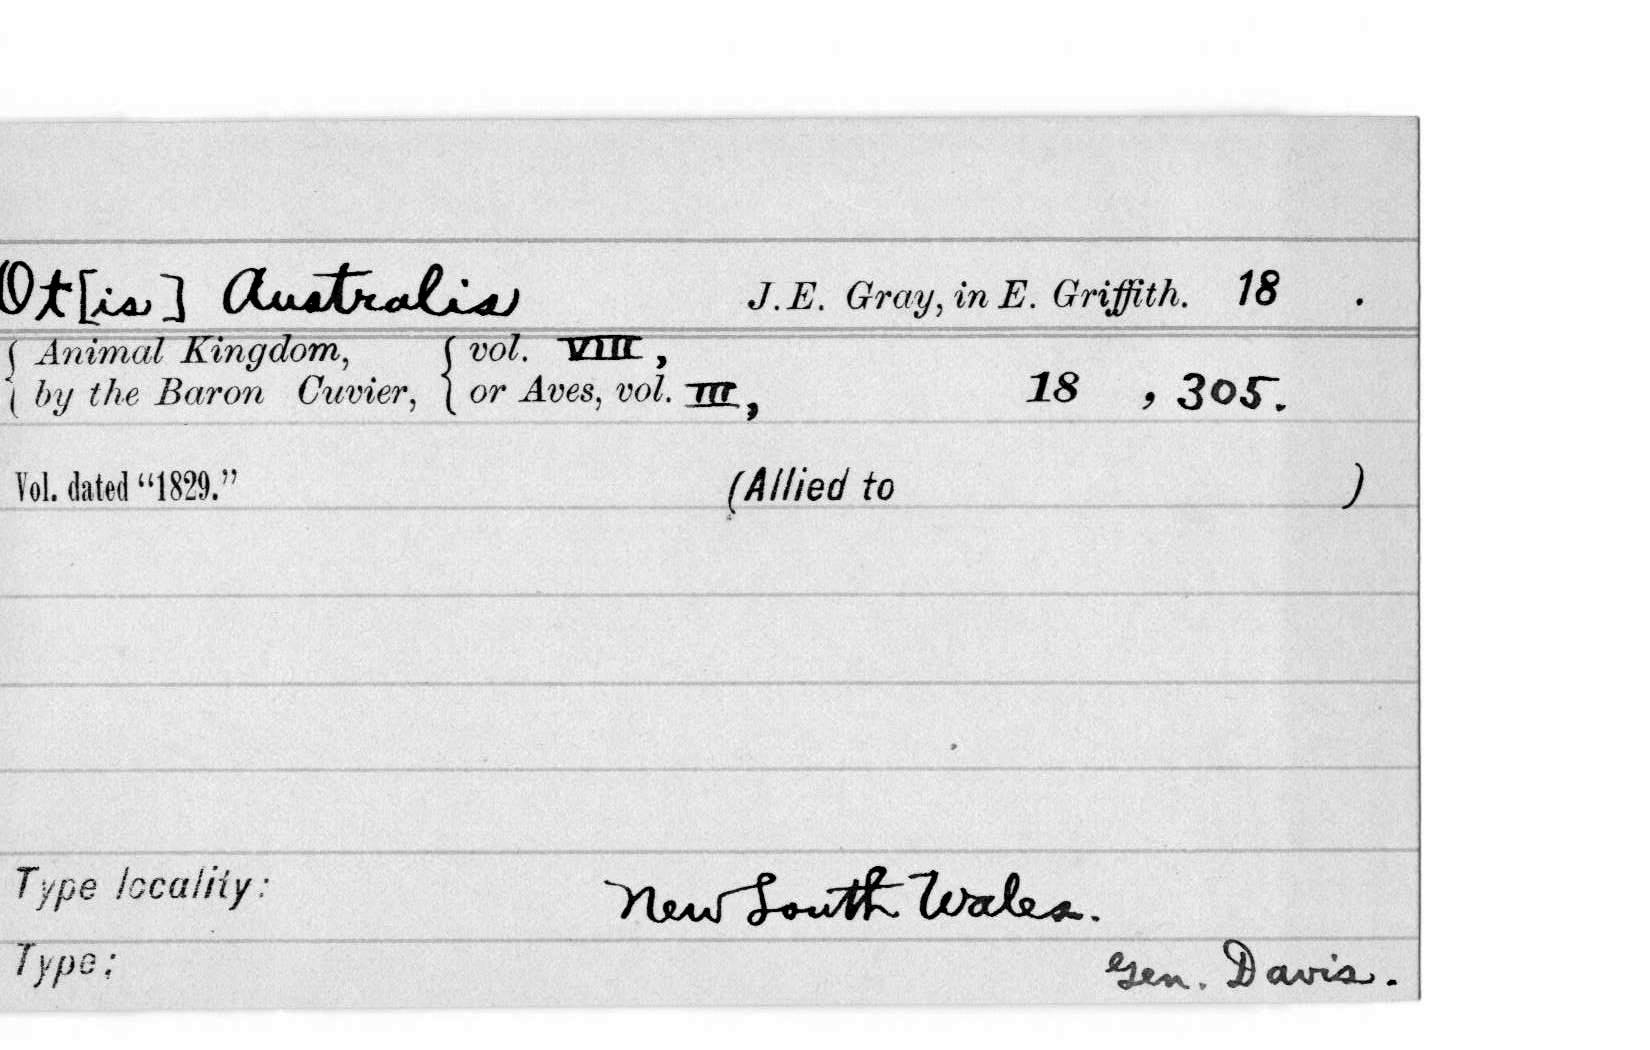 Ot[is] Australis J.E. Gray, in E. Griffith. 18 .
{ Animal Kingdom, { vol. VIII,
{ by the Baron Cuvier, { or Aves, vol. III, 18 , 305.
Vol. dated “1829.” (Allied to )
Type locality: New South Wales.
Type: Gen. Davis.